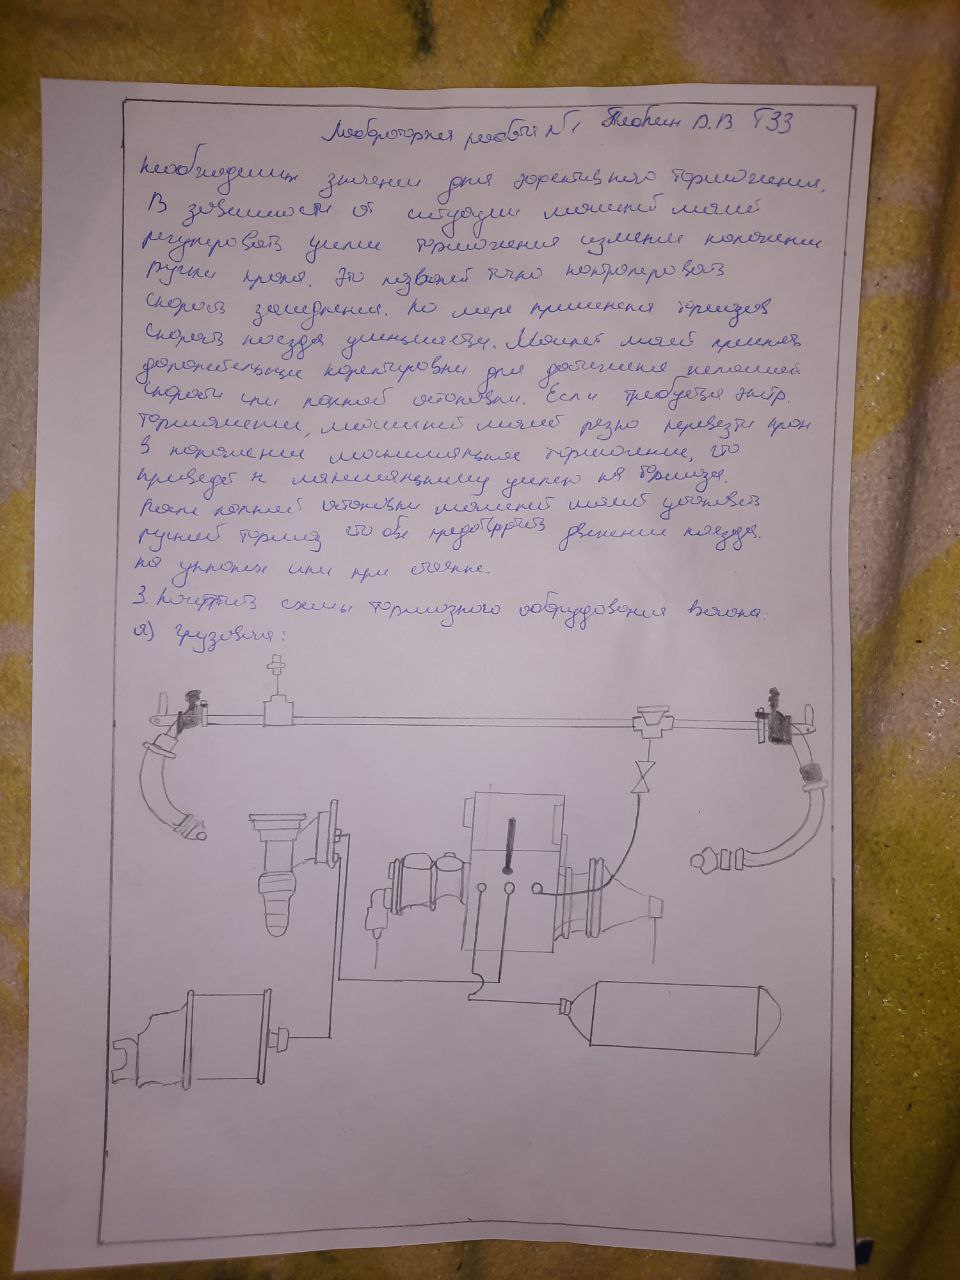 Лабораторная работа №1 В.В. Т33
необходимых значении для эфективного торможения.
В зависимости от ситуации машинист может
регулировать усилие торможения изменяя положение
ручки крана. Это позволяет точно контролировать
скорость замедления. По мере применения тормозов
скорость поезда уменьшается. Машинист может принять
дополнительные коректировки для достижения желаемой
скорости или полной остановки. Если требуется экстр.
торможение, машинист может резко перевезти кран
в положение торможение, что
приведет к максимальному усилию на тормоза.
После полной остановки машинист может установить
ручной тормоз что бы предотвратить движение поезда.
на уклоне или при стоянке.
3. схемы тормозного оборудования вагона:
а) Грузовой: